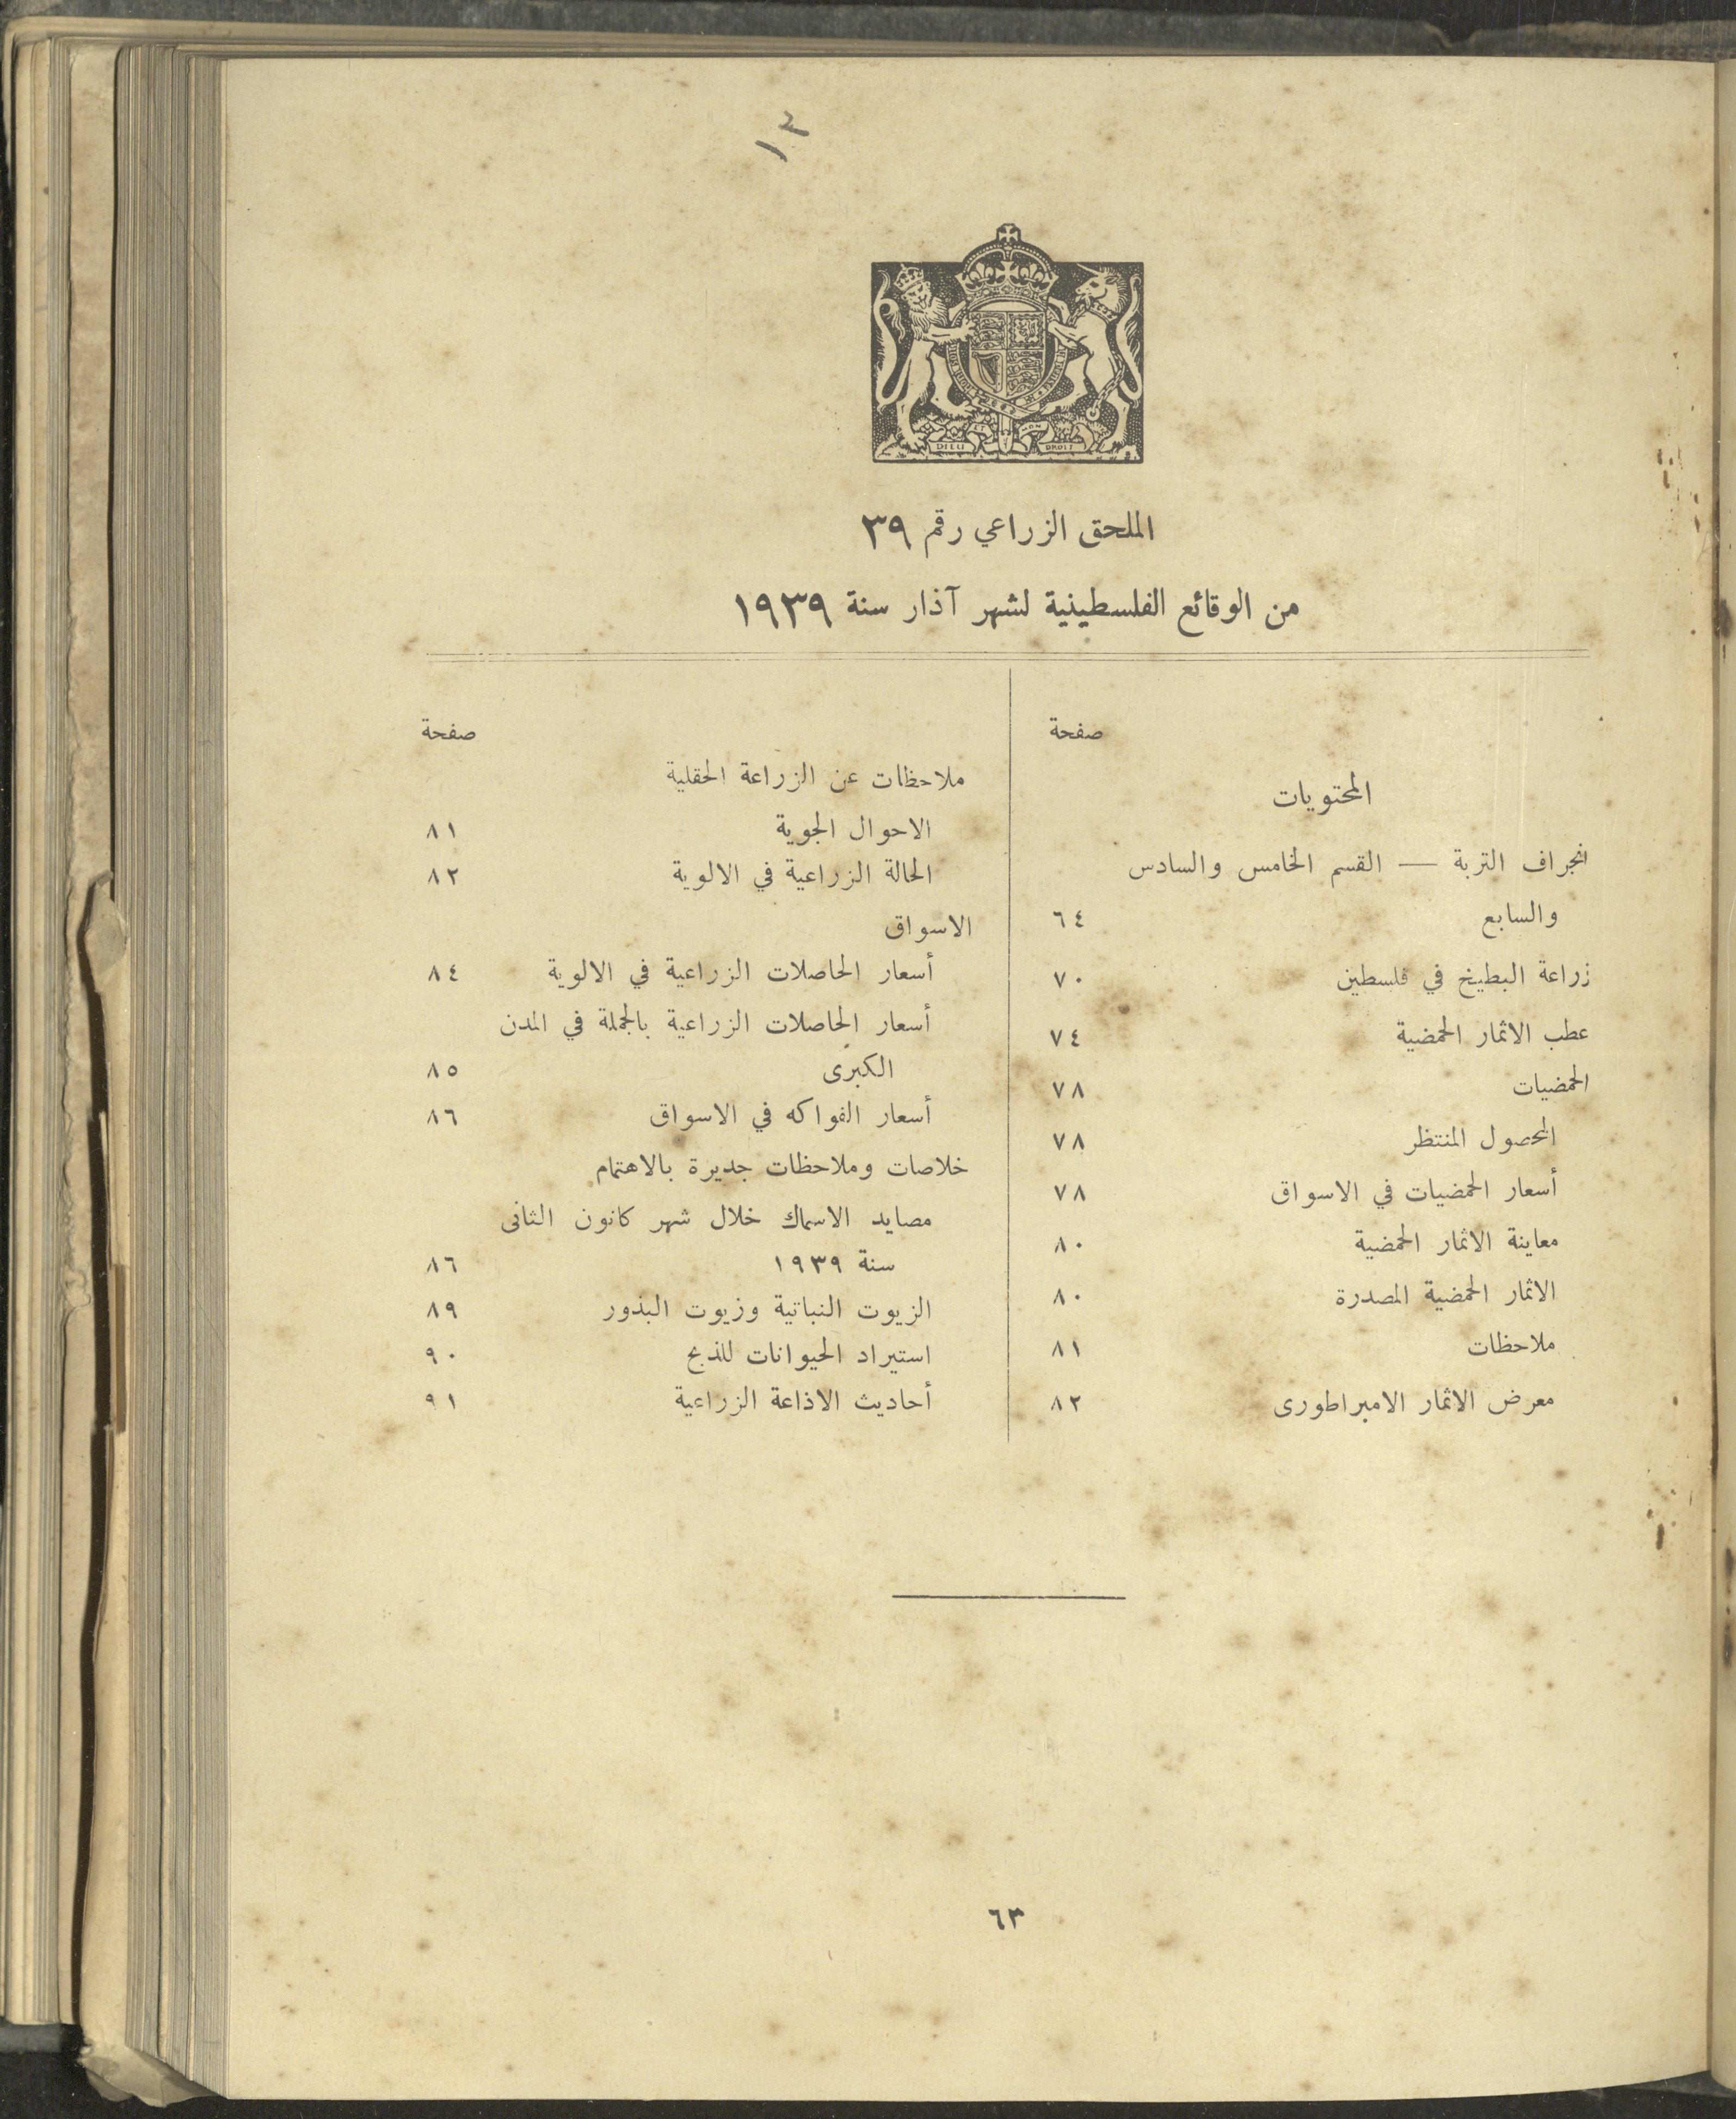 ١٣
DIEU ET MON DROIT
الملحق الزراعي رقم ٣٩
من الوقائع الفلسطينية لشهر آذار سنة ١٩٣٩
صفحة
المحتويات
انجراف التربة — القسم الخامس والسادس
والسابع ٦٤
زراعة البطيخ في فلسطين ٧٠
عطب الاثمار الحمضية ٧٤
الحمضيات ٧٨
المحصول المنتظر ٧٨
أسعار الحمضيات في الاسواق ٧٨
معاينة الاثمار الحمضية ٨٠
الاثمار الحمضية المصدرة ٨٠
ملاحظات ٨١
معرض الاثمار الامبراطورى ٨٢
صفحة
ملاحظات عن الزراعة الحقلية
الاحوال الجوية ٨١
الحالة الزراعية في الالوية ٨٢
الاسواق
أسعار الحاصلات الزراعية في الالوية ٨٤
أسعار الحاصلات الزراعية بالجملة في المدن
الكبرى ٨٥
أسعار الفواكه في الاسواق ٨٦
خلاصات وملاحظات جديرة بالاهتمام
مصايد الاسماك خلال شهر كانون الثانى
سنة ١٩٣٩ ٨٦
الزيوت النباتية وزيوت البذور ٨٩
استيراد الحيوانات للذبح ٩٠
أحاديث الاذاعة الزراعية ٩١
٦٣